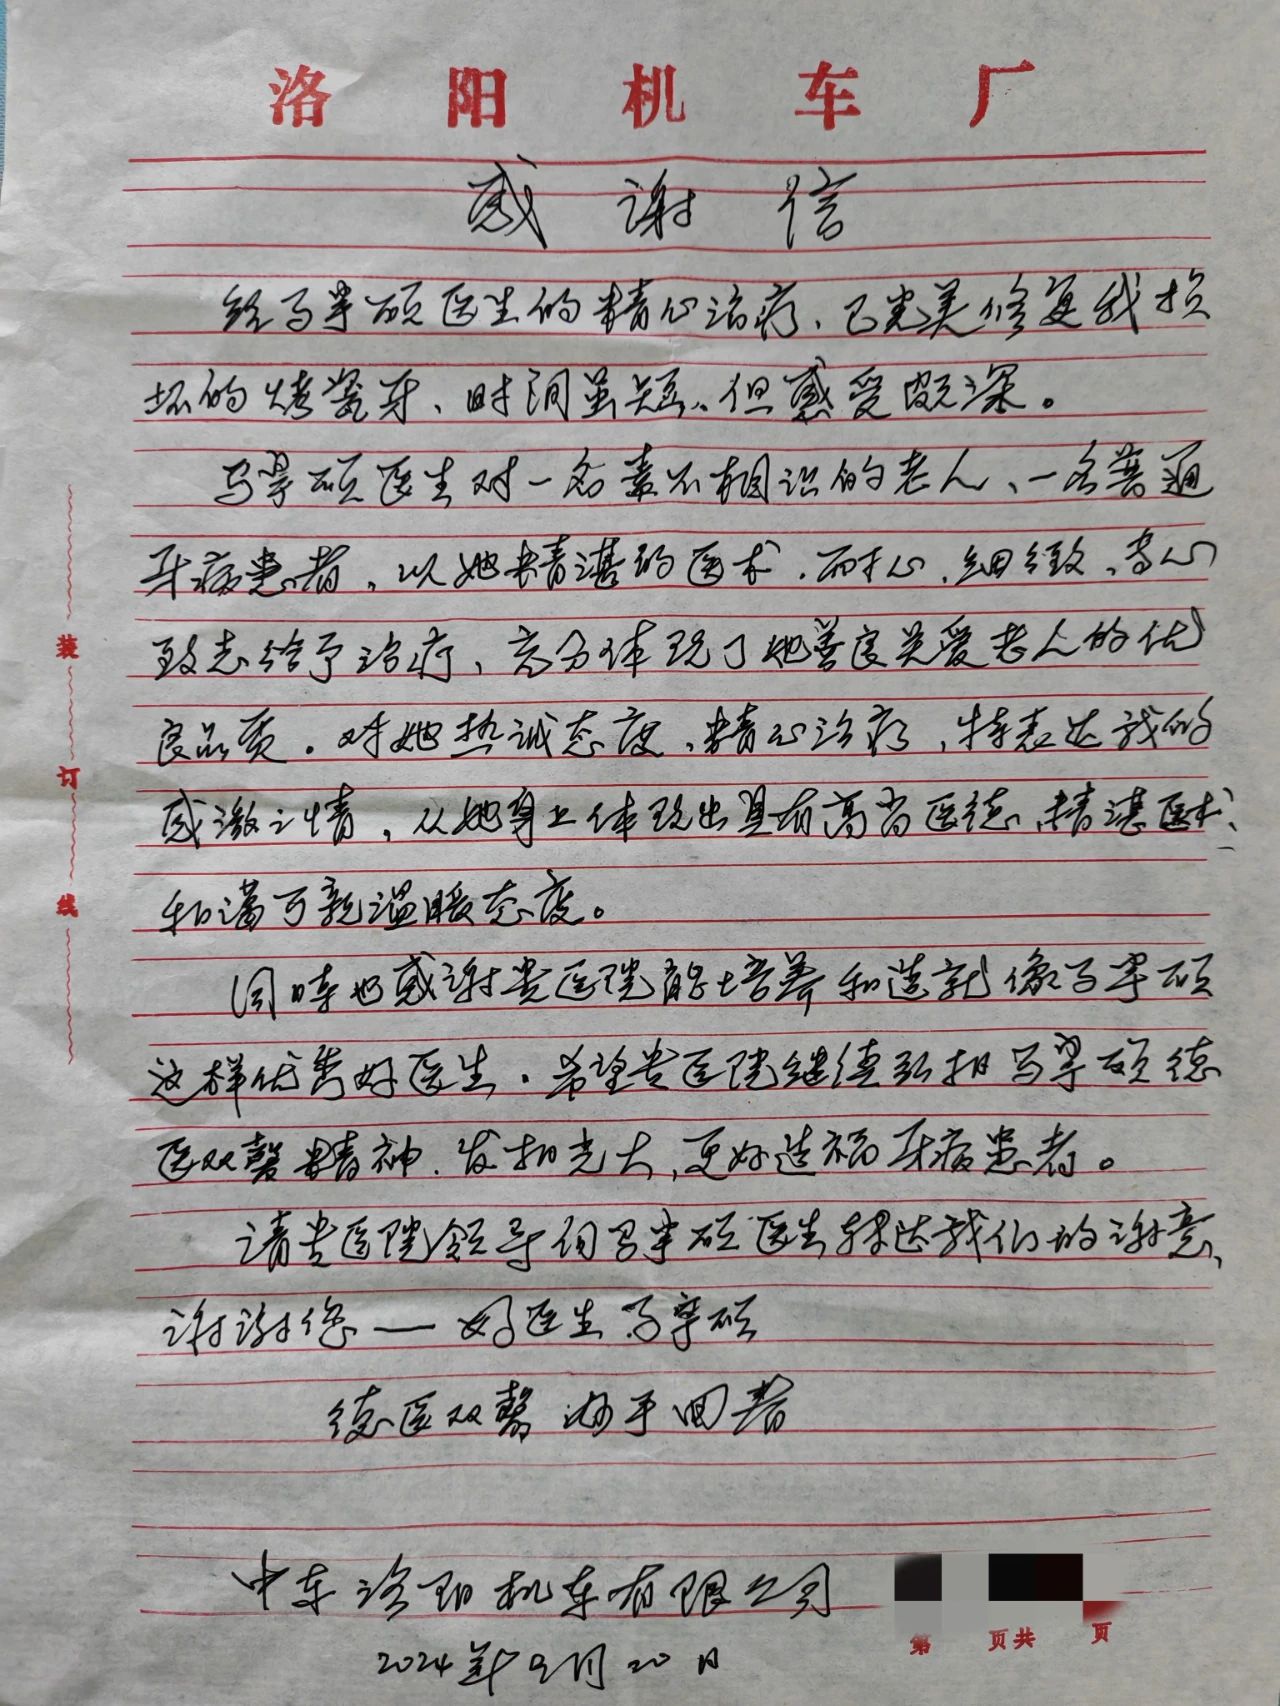 洛阳机车厂
感谢信
经马翠硕医生的精心治疗、已完美修复我损
坏的烤瓷牙、时间虽短、但感受颇深。
马翠硕医生对一名素不相识的老人、一名普通
牙病患者，以她精湛的医术．耐心、细致、专心
致志给予治疗，充分体现了她善良关爱老人的优
良品质．对她热诚态度、精心治疗，特表达我的
感激之情，从她身上体现出具有高尚医德、精湛医术、
和蔼可亲温暖态度。
同时也感谢贵医院能培养和造就像马翠硕
这样优秀好医生．希望贵医院继续弘扬马翠硕德
医双馨精神．发扬光大，更好造福牙病患者。
请贵医院领导向马翠硕医生转达我们的谢意、
谢谢您——好医生马翠硕
德医双馨 妙手回春
中车洛阳机车有限公司
2024年9月20日
第 页共 页
装
订
线